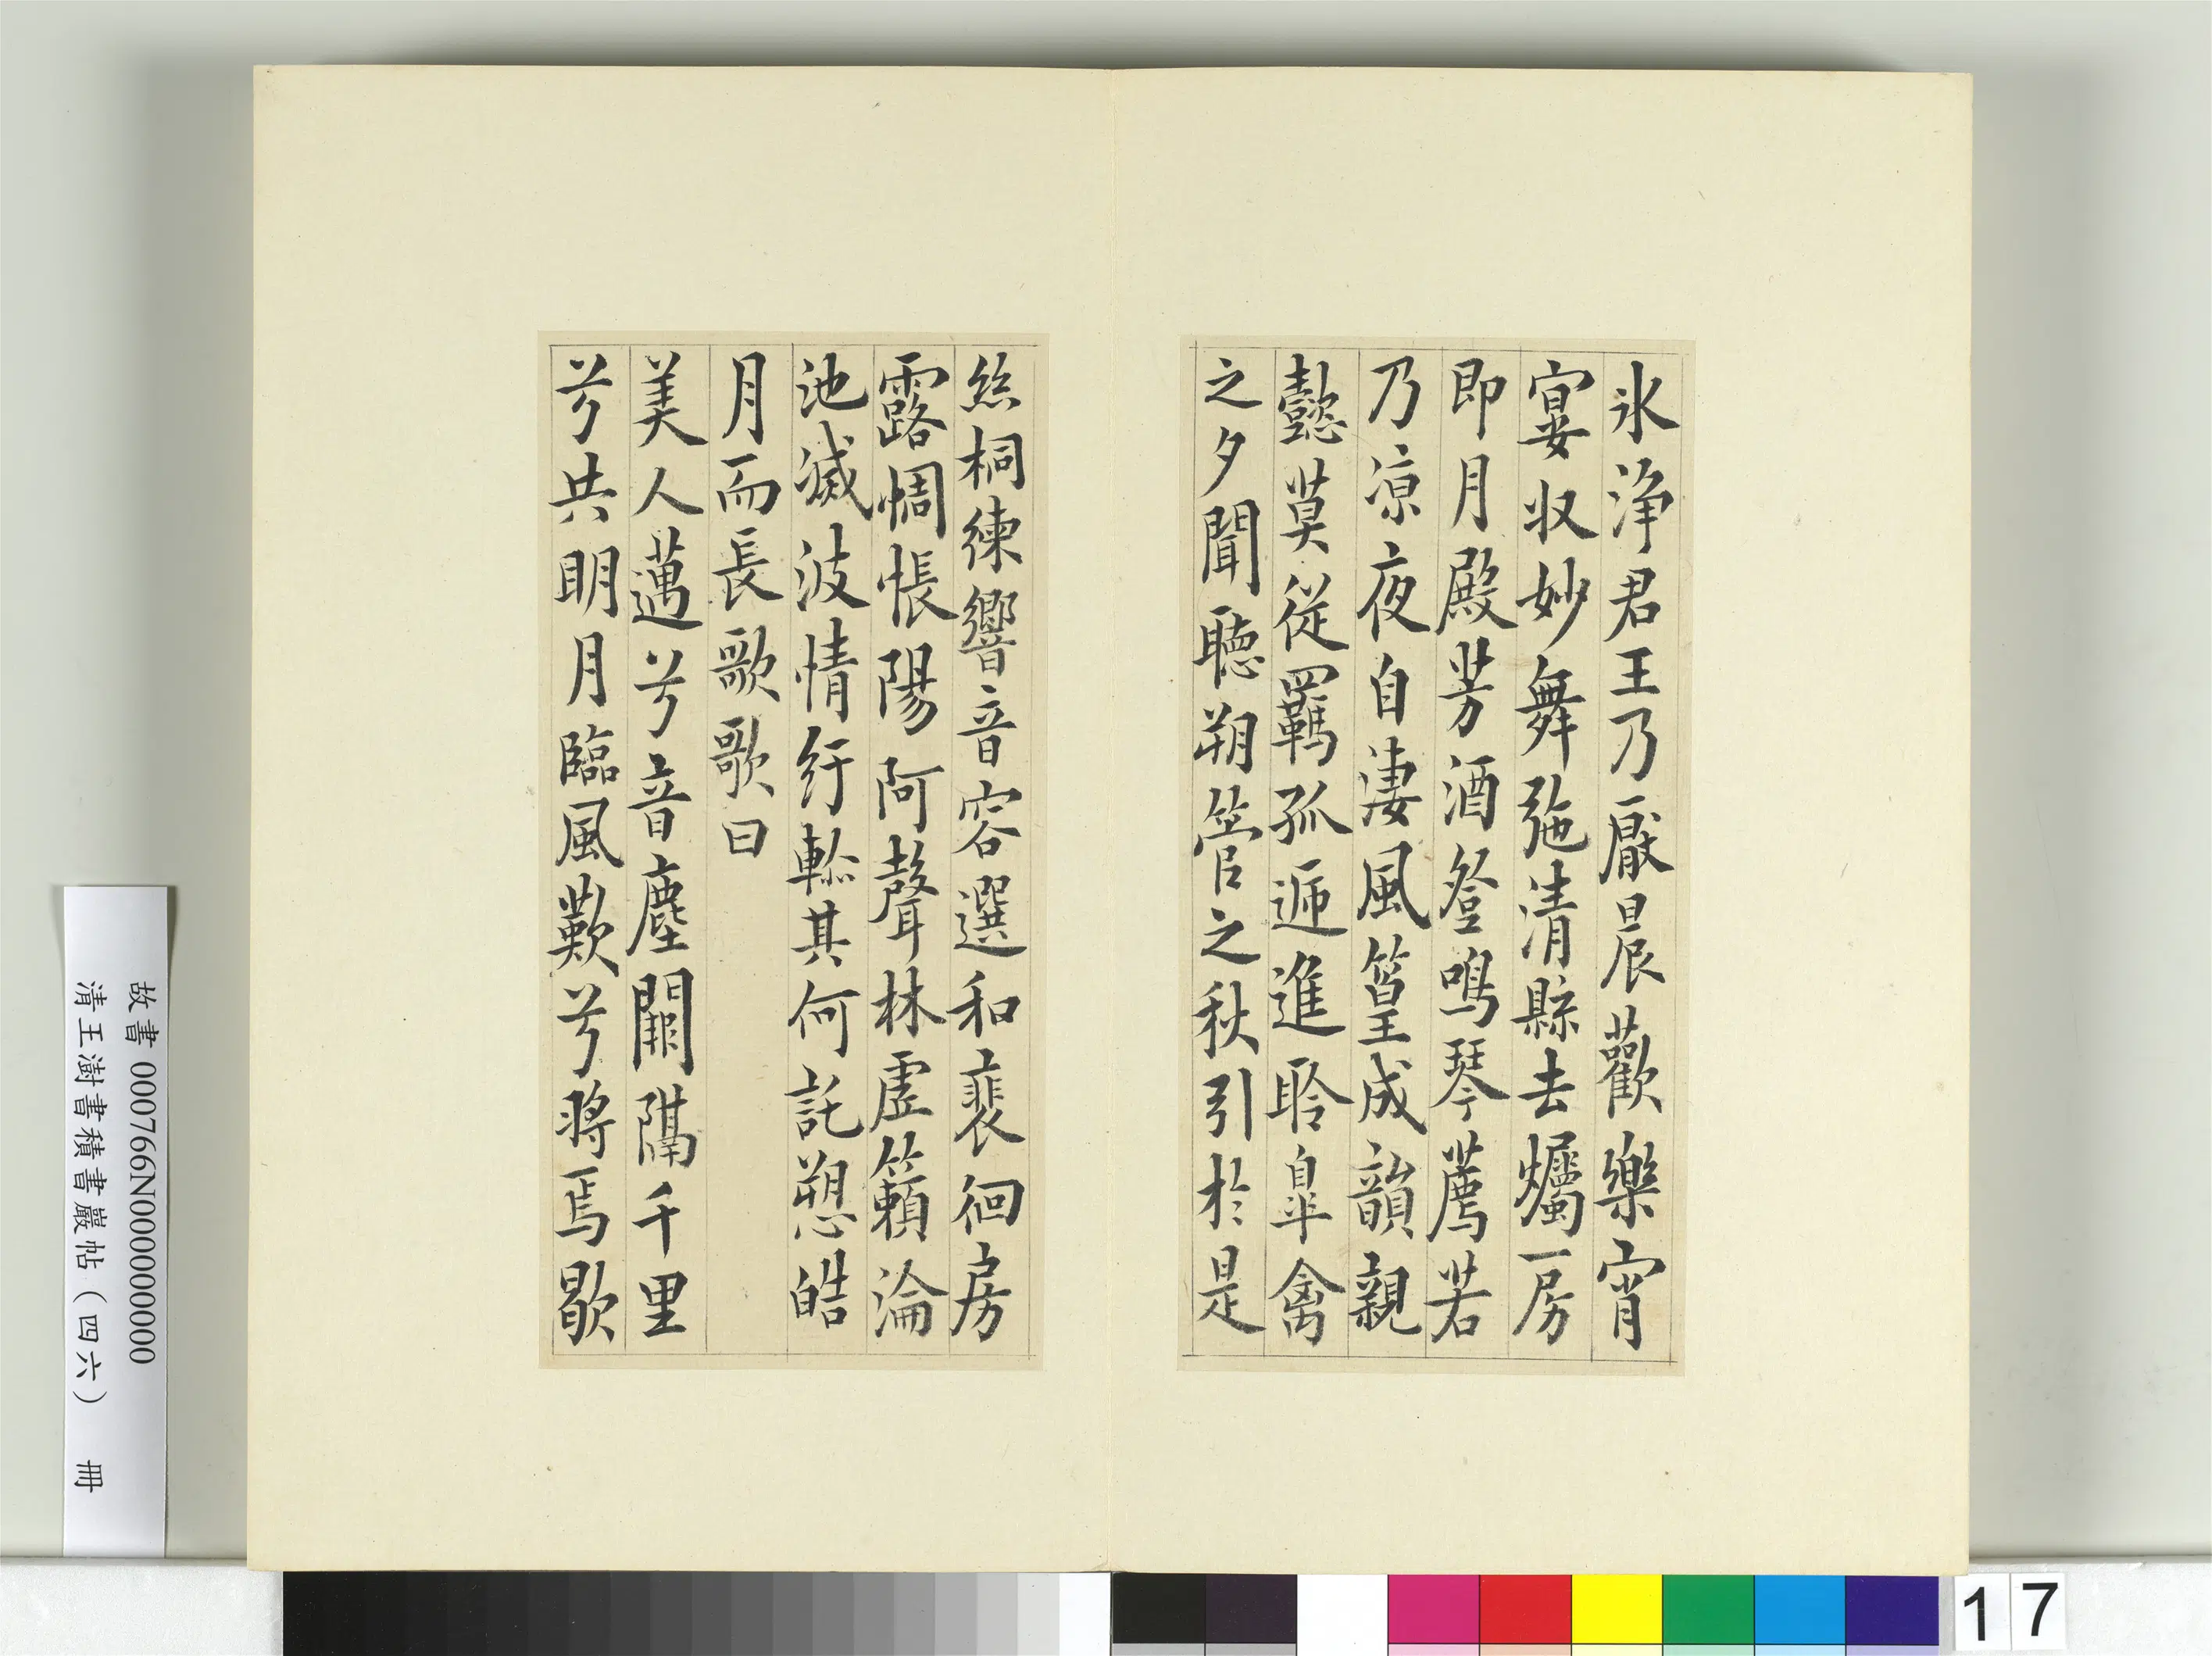 氷浄君王乃厭晨歡樂宵
宴収妙舞弛清縣去爥房
即月殿芳酒登鳴琴薦若
乃涼夜自淒風篁成韻親
懿莫從羈孤遞進聆皐禽
之夕聞聽朔管之秋引於是
絲桐練響音容選和裴徊房
露惆悵陽阿聲林虛籟淪
池滅波情紆軫其何託愬皓
月而長歌歌曰
美人邁兮音塵闕隔千里
兮共明月臨風歎兮將焉歇
故書 000766N000000000
清王澍書積書巖帖（四六） 冊
17